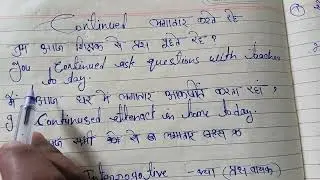 Continued लगातार करते रहे
तुम आज शिक्षक से प्रश्न पूछते रहे ?
you continued ask questions with teacher
to day.
मैं आज घर में लगातार करता रहा ?
I Continued in home today.
आज सभी लगातार
Interrogative - क्या (प्रश्न वाचक)